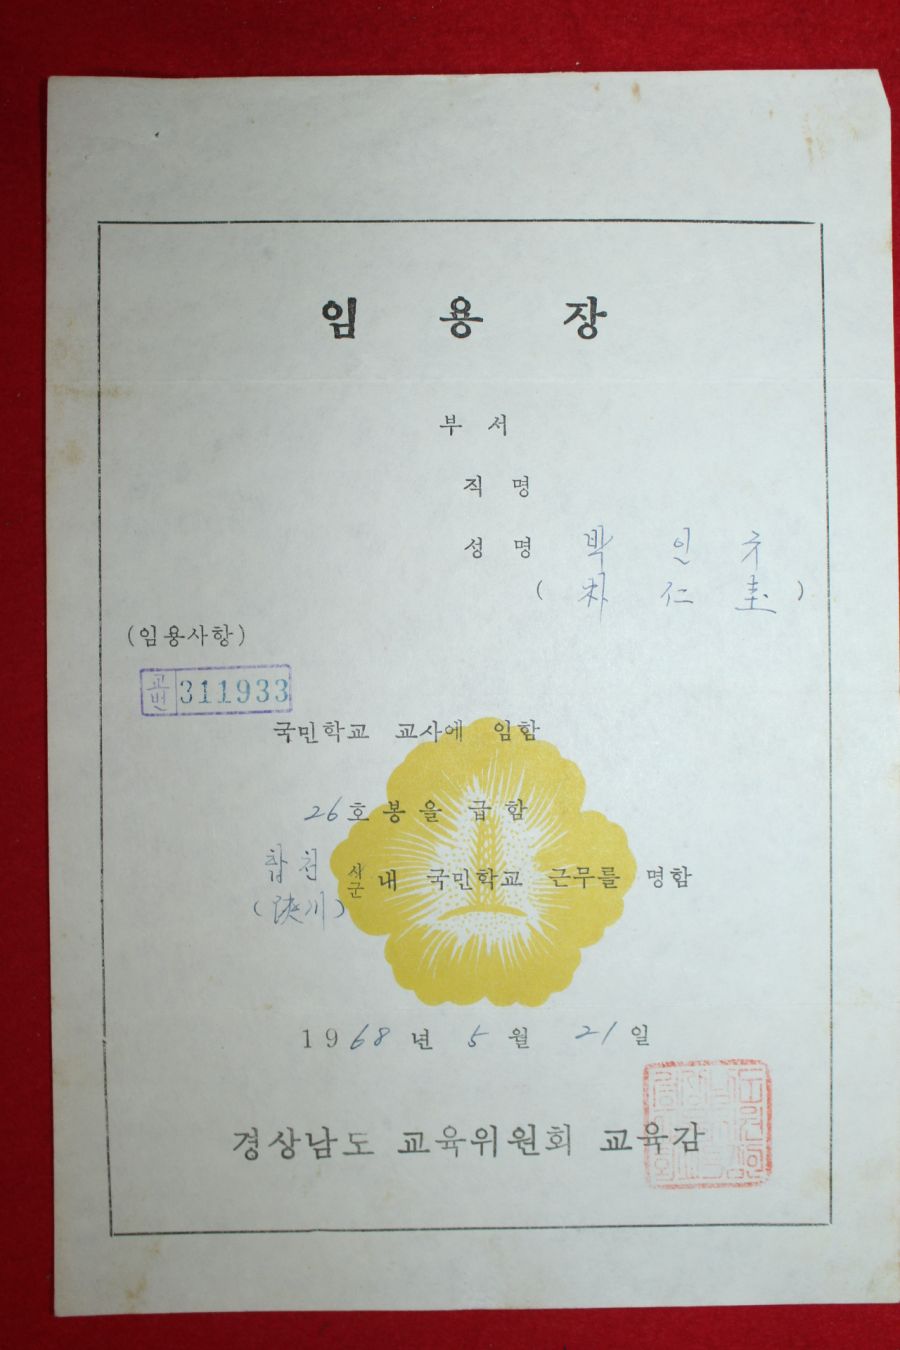 임 용 장
부 서
직 명
성 명 박 인 규
( 朴 仁 圭 )
(임용사항)
교번 311933
국민학교 교사에 임함
26호봉을 급함
합천 시군 내 국민학교 근무를 명함
(陜川)
1968년 5월 21일
경상남도 교육위원회 교육감